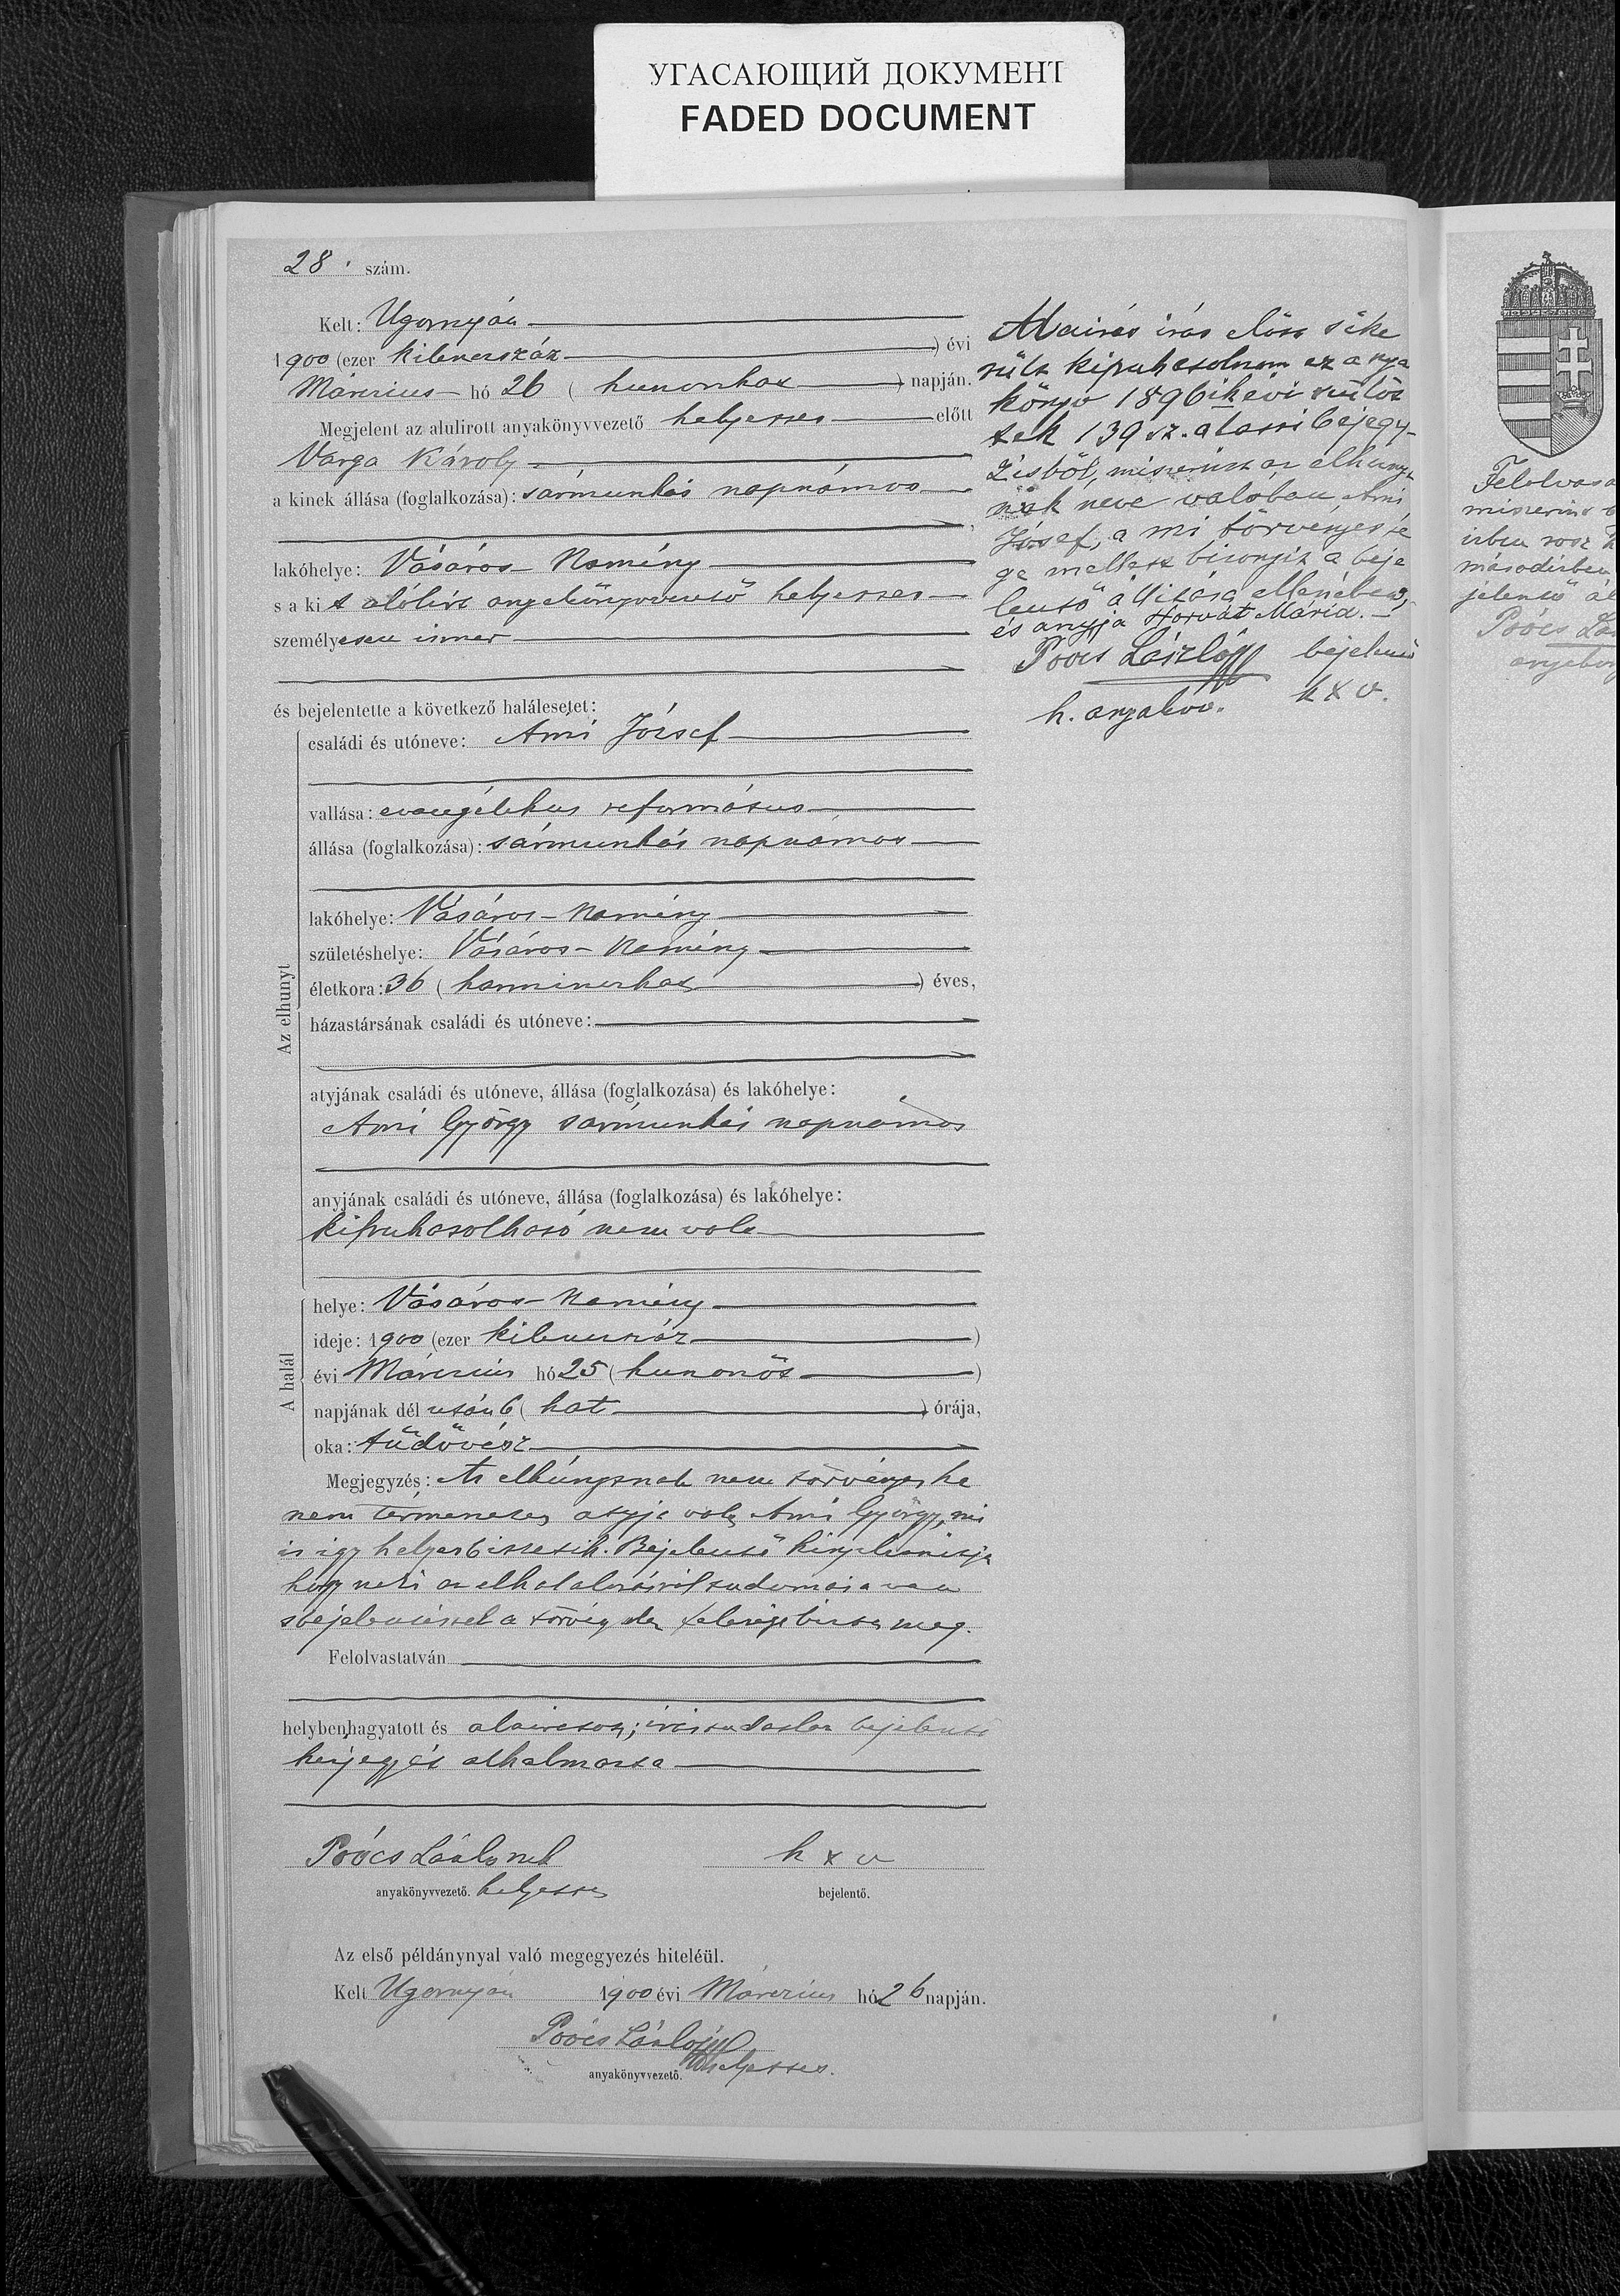 УГАСАЮЩИЙ ДОКУМЕНТ
FADED DOCUMENT
28. szám.
Kelt: Ugornyán
1900 (ezer kilenczszáz) évi
Márczius hó 26 (huszonhat) napján.
Megjelent az alulirott anyakönyvvezető helyettes előtt
Varga Károly
a kinek állása (foglalkozása): sármunkás napszámos
lakóhelye: Vásáros-Namény
s a kit alólirt anyakönyvvezető helyettes
személyesen ismer
és bejelentette a következő halálesetet:
Az elhunyt
családi és utóneve: Ami József
vallása: evangélikus református
állása (foglalkozása): sármunkás napszámos
lakóhelye: Vásáros-Namény
születéshelye: Vásáros-Namény
életkora: 36 (harminczhat) éves,
házastársának családi és utóneve:
atyjának családi és utóneve, állása (foglalkozása) és lakóhelye:
Ami György sármunkás napszámos
anyjának családi és utóneve, állása (foglalkozása) és lakóhelye:
kipuhatolható nem volt
A halál
helye: Vásáros-Namény
ideje: 1900 (ezer kilenczszáz)
évi Márczius hó 25 (huszonöt)
napjának dél után 6 (hat) órája,
oka: tüdővész
Megjegyzés: Az elhunytnak nem törvényes ha
nem természetes atyja volt Ami György, mi
is így helyesbittetik. Bejelentő kinyilvánitja
hogy neki az elhalálozásról tudomása van
s bejelentéssel a törvény által felesége bizta meg.
Felolvastatván
helybenhagyatott és aláiratott; irástudatlan bejelentő
kézjegyét alkalmazta
Poócs László mk
anyakönyvvezető. helyettes
k x v
bejelentő.
Az első példánynyal való megegyezés hiteléül.
Kelt Ugornyán 1900 évi Márczius hó 26 napján.
Poócs László
anyakönyvvezető. helyettes.
Aláirás előtt sike
rült kipuhatolnom ez anya
könyv 1896ik évi szülöt
tek 139 sz. alatti bejegy-
zésből, miszerint az elhunyt
nak neve valóban Ami
József, a mi törvényessé
ge mellett bizonyit a beje
lentő állitása ellenében,
és anyja Horvát Mária.
Poócs László bejelentő
h. anyakvv. k x v.
Felolvasa
miszerint
másodízben
jelentő ál
Poócs Lás